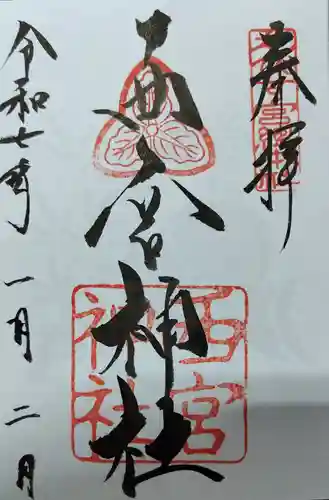 奉拝
西宮神社
西宮
神社
令和七年一月二日